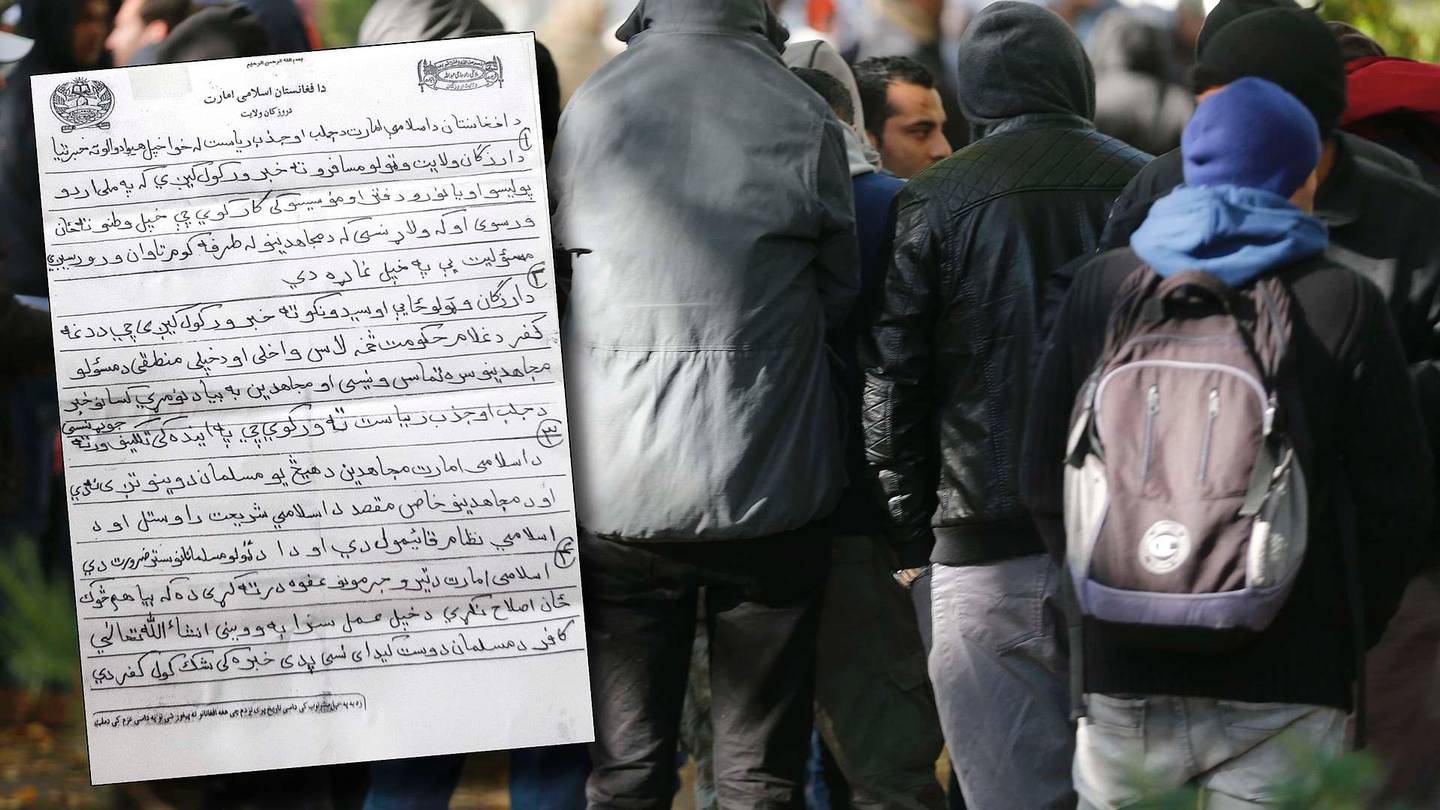 بسم الله الرحمن الرحیم
د افغانستان اسلامی امارت
د روزگان ولایت
د افغانستان د اسلامي امارت د جلب او جذب ریاست له خوا خپل هیوادوالو ته خبرتیا
۱
د ارزگان ولایت و ټولو مسافرو ته خبر ورکول کیږي که په ملي اردو
پولیسو او یا نورو دفتر او مؤسیسو کی کار کوي چي خپل وطنو ته ځان
ورسوی او که ولاړ نسی که د مجاهدینو له طرفه کوم تاوان ورورسیږي
مسؤلیت یې په خپل غاړه دي
۲
د ارزگان و ټولو ځایي اوسیدونکو ته خبر ورکول کیږي چي د دغه
کفر د غلام حکومت څخه لاس واخلی او د خپلي منطقی د مسؤلو
مجاهدینو سره تماس ونیسی او مجاهدین به بیا د نوموړي کسانو خبر
د جلب او جذب ریاست ته ورکوي چي په اینده کی تکلیف ورته
جوړ نسي
۳
د اسلامي امارت مجاهدین د هیڅ یو مسلمان د وینو تږی نه دي
او د مجاهدینو خاص مقصد د اسلامي شریعت راوستل او د
اسلامي نظام قائیمول دي او دا د ټولو مسلمانانو ستر ضرورت دي
۴
اسلامي امارت د تیرو جرمونو عفوه درته کړی ده که بیا هم څوک
ځان اصلاح نکړي د خپل عمل سزا به وویني انشاءالله تعالی
کافر د مسلمان دوست کیدای نسی پدی خبره کی شک کول کفر دي